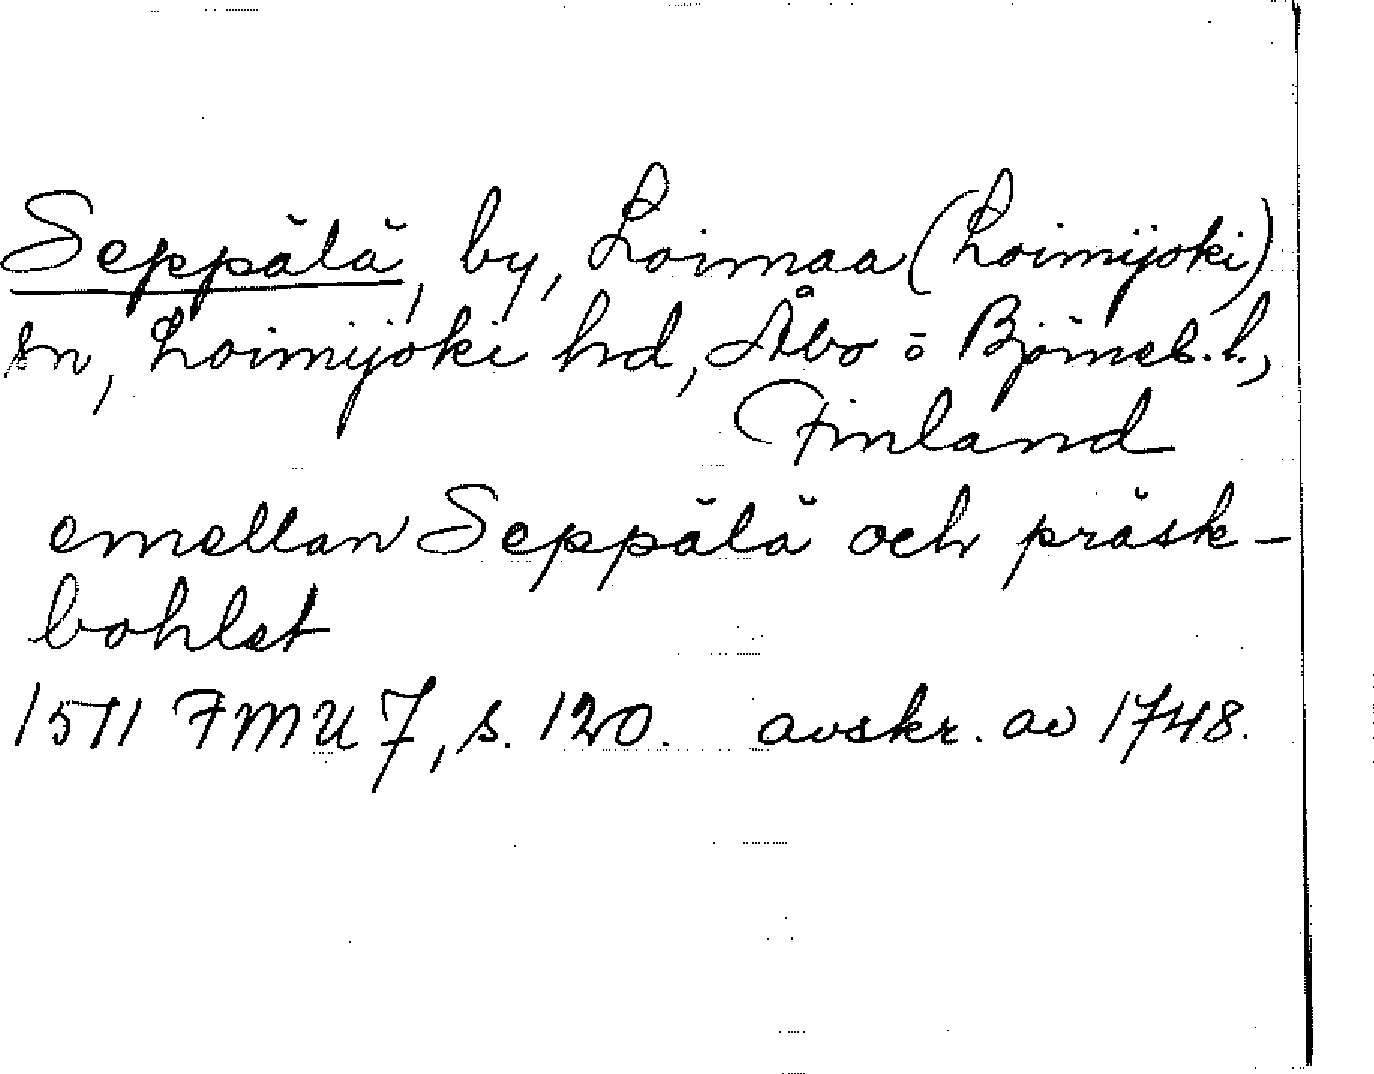 Seppälä, by, Loimaa (Loimijoki)
sn, Loimijoki hd, Åbo o Björneb. l.,
Finland
emellan Seppälä och präsk-
bohlet
1511 FMU 7, s. 120. avskr. av 1748.